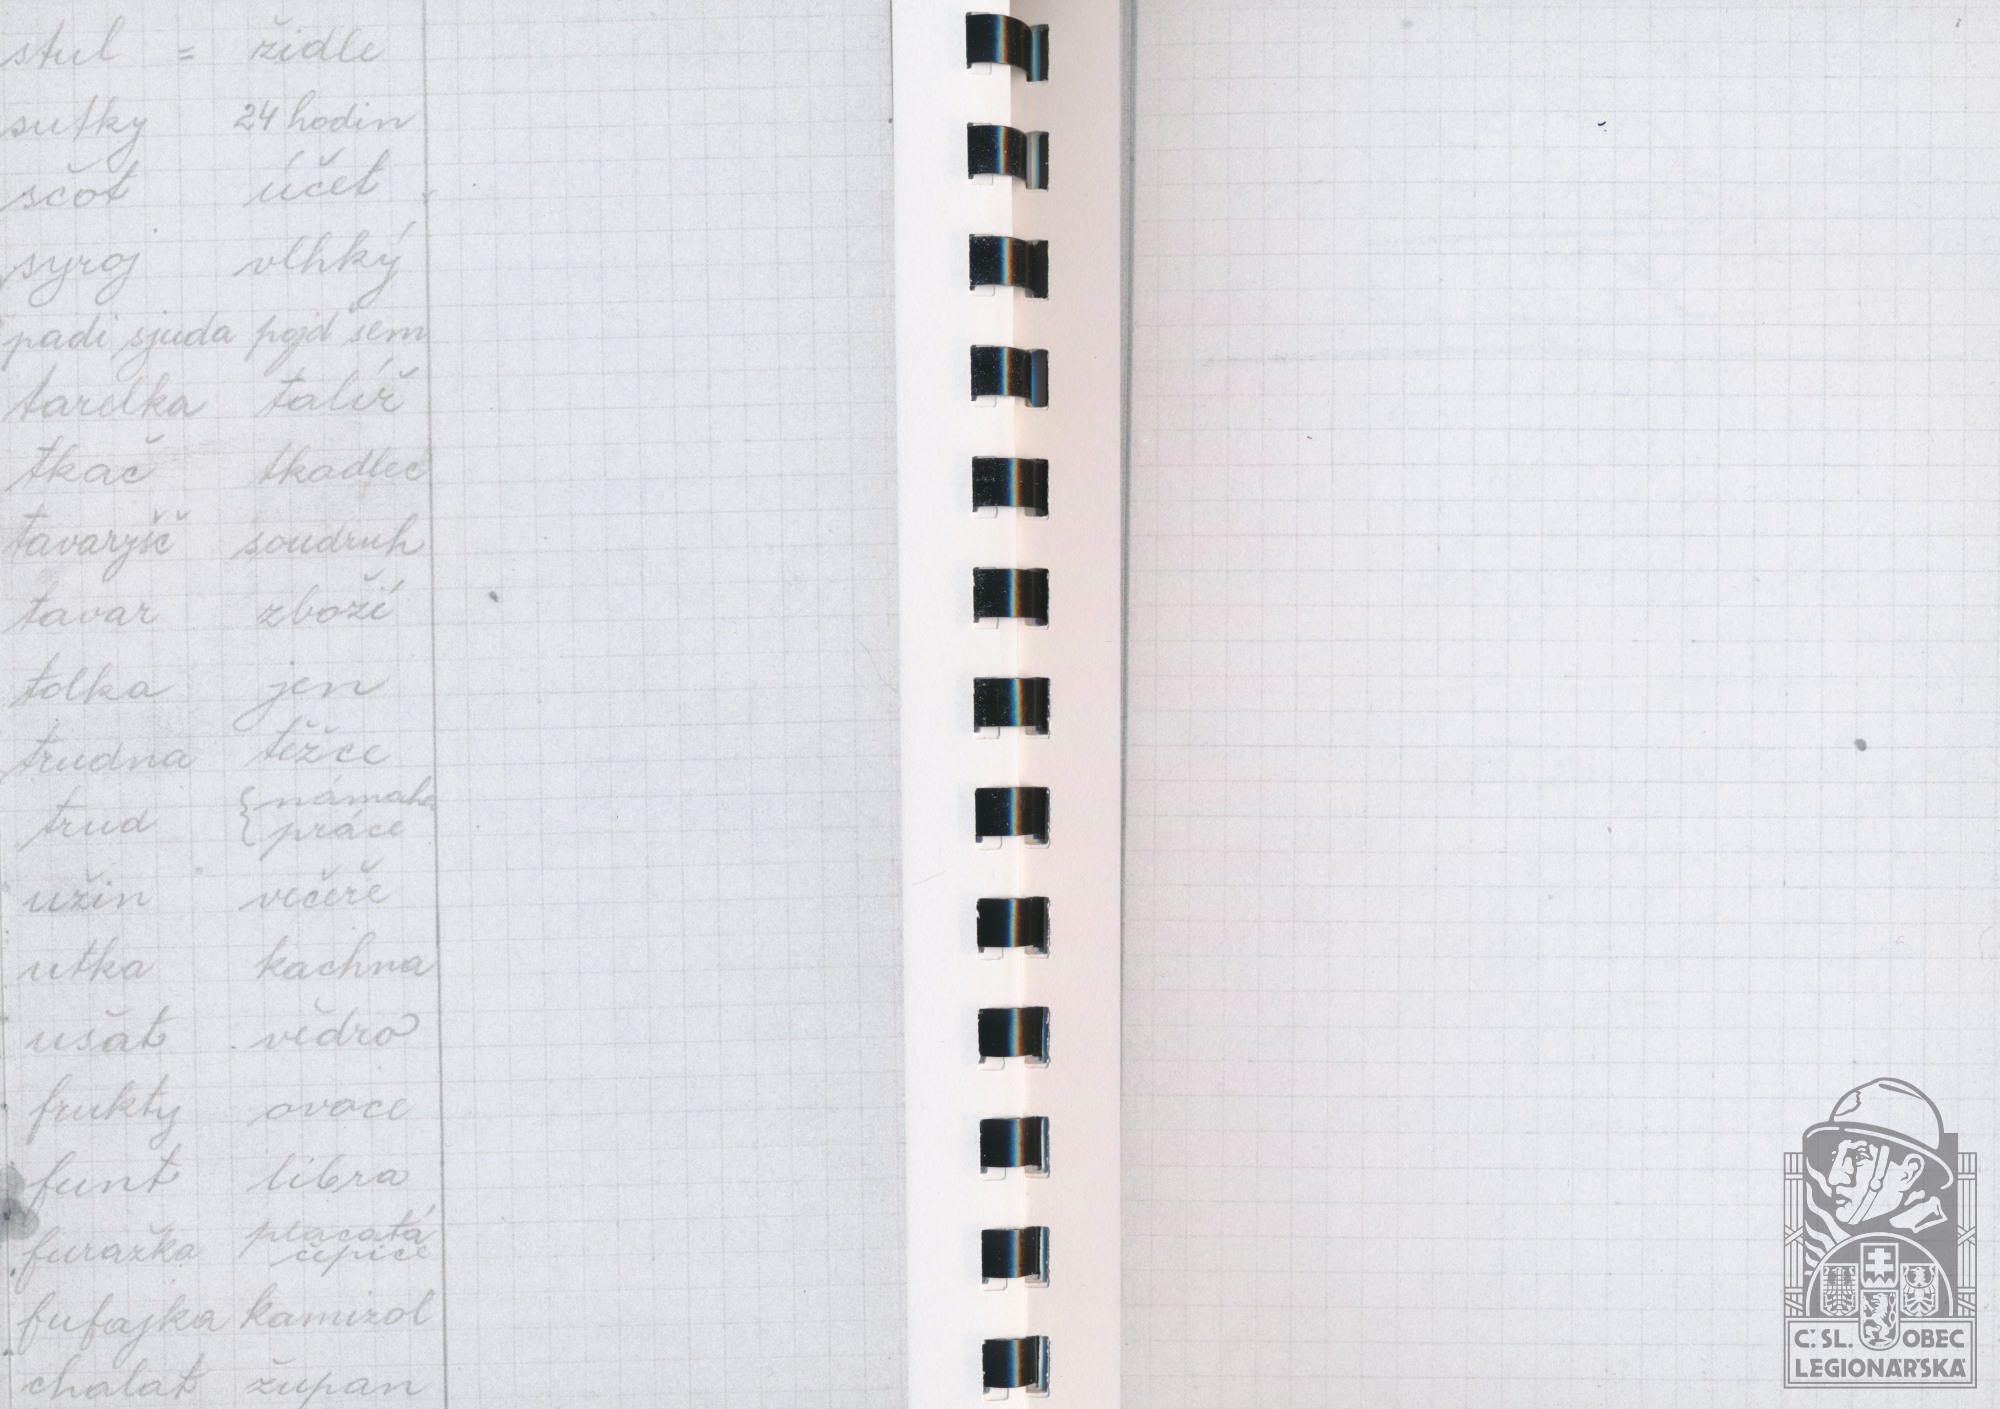 stul = židle
sutky 24 hodin
sčot účet
syroj vlhký
padi sjuda pojd sem
tarelka talíř
tkač tkadlec
tavaryšč soudruh
tavar zboží
tolka jen
trudna těžce
trud { námaha
práce
užin večeře
utka kachna
ušat vědro
frukty ovoce
funt libra
furažka placatá
čepice
fufajka kamizol
chalat župan
Č.SL. OBEC
LEGIONÁŘSKÁ